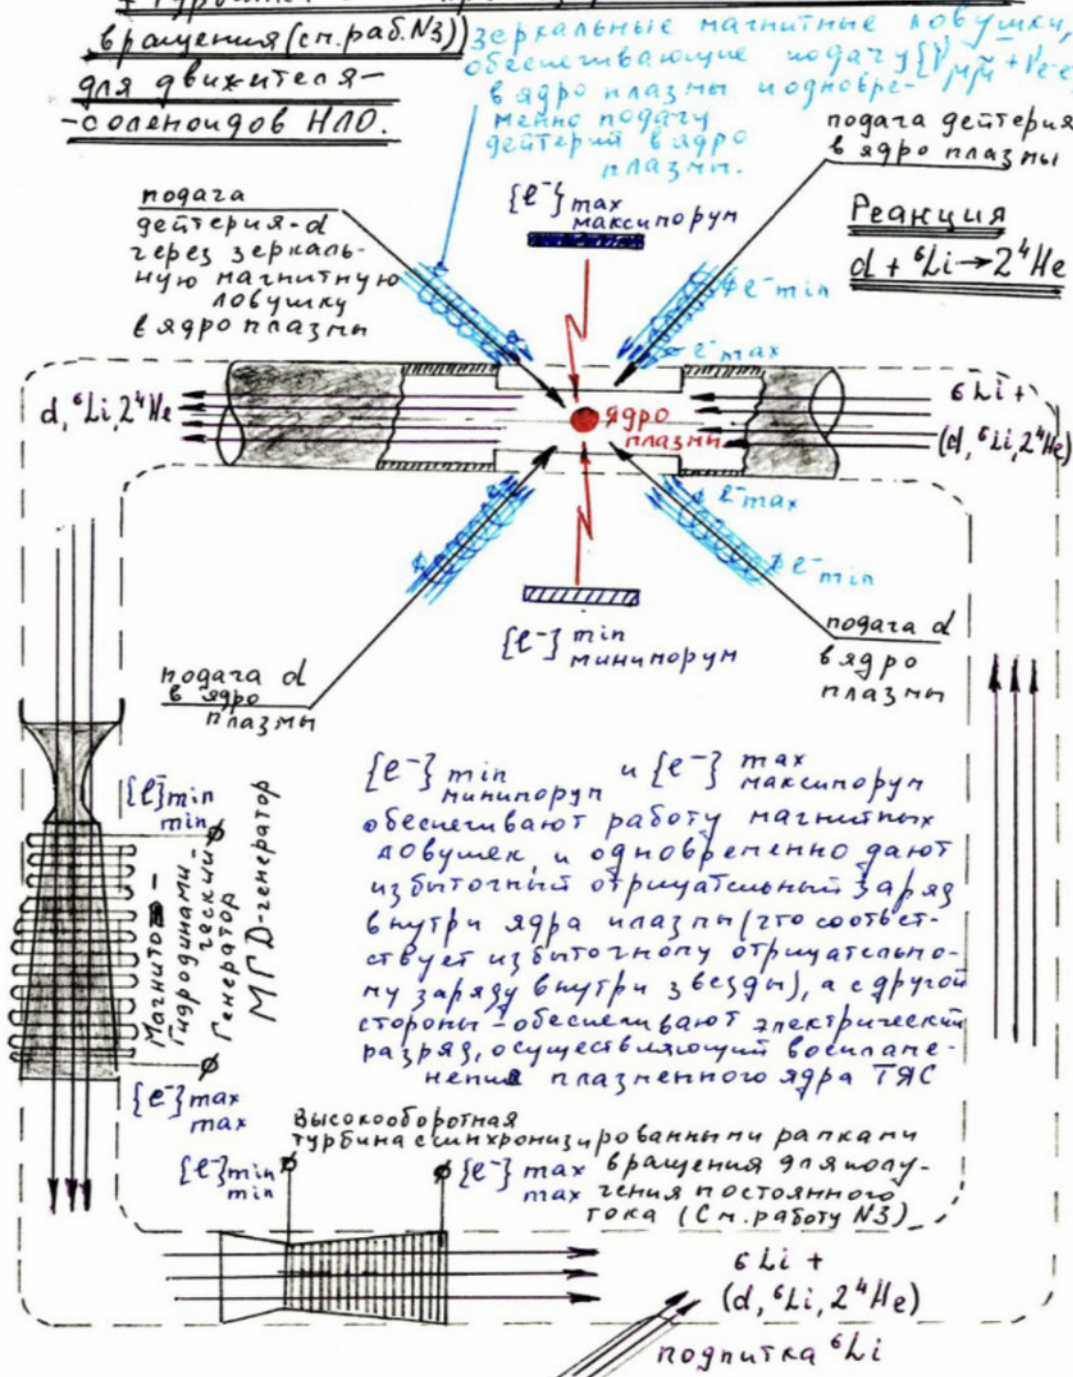 вращения (см. раб. N3))
для движителя-
-соленоидов НЛО.
зеркальные магнитные ловушки,
обеспечивающие подачу
в ядро плазмы и одновре-
менно подачу
дейтерий в ядро
плазмы.
подача дейтерия
в ядро плазмы
Реакция
d + ⁶Li → 2⁴He
подача
дейтерия-d
через зеркаль-
ную магнитную
ловушку
в ядро плазмы
{e⁻} max
максиморум
e⁻ min
e⁻ max
d, ⁶Li, 2⁴He
ядро
плазмы
⁶Li +
(d, ⁶Li, 2⁴He)
e⁻ max
e⁻ min
{e⁻} min
миниморум
подача d
в ядро
плазмы
подача d
в ядро
плазмы
{e⁻} min и {e⁻} max
миниморум максиморум
обеспечивают работу магнитных
ловушек, и одновременно дают
избыточный отрицательный заряд
внутри ядра плазмы (что соответ-
ствует избыточному отрицательно-
му заряду внутри звезды), а с другой
стороны - обеспечивают электрический
разряд, осуществляющий воспламе-
нения плазменного ядра ТЯС
{e⁻} min
min
Магнито-
Гидродинами-
ческий
Генератор
МГД-генератор
{e⁻} max
max
высокооборотная
турбина с синхронизированными рамками
вращения для полу-
чения постоянного
тока (См. работу N3)
{e⁻} min
min
{e⁻} max
max
⁶Li +
(d, ⁶Li, 2⁴He)
подпитка ⁶Li